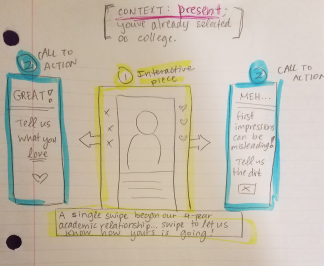 CONTEXT: present;
you've already selected
a college.
② CALL TO
ACTION
GREAT!
Tell us
what you
love
① Interactive
piece
x
x
x
② CALL TO
ACTION
MEH...
first
impressions
can be
misleading!
Tell us
the dirt
x
A single swipe began our 4-year
academic relationship... swipe to let us
know how yours is going!